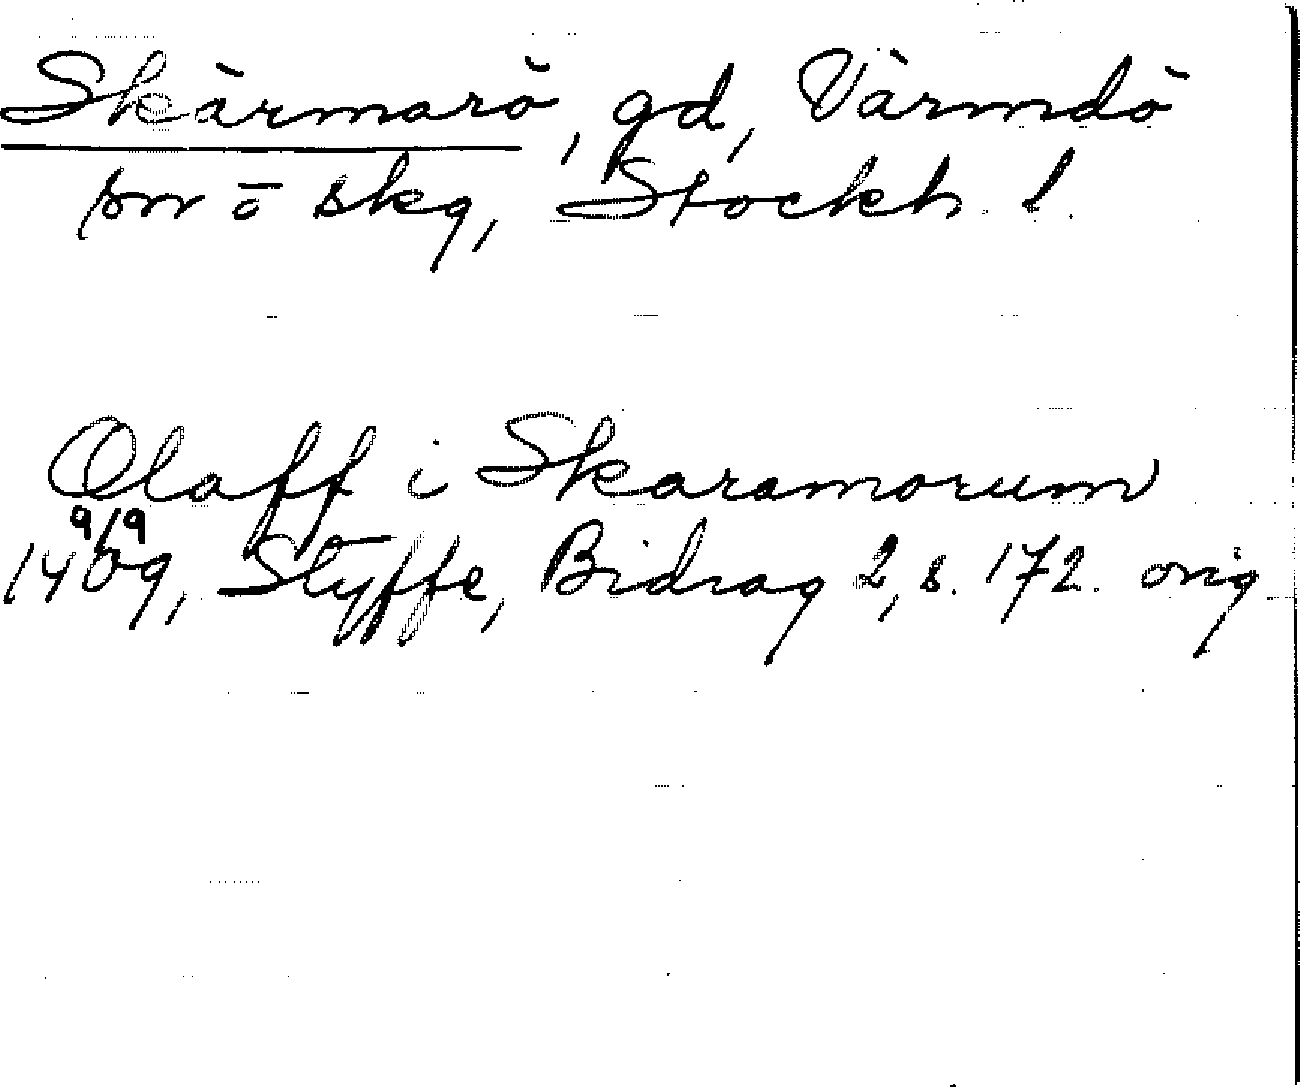 Skärmarö, gd, Värmdö
sn o skg, Stockh. l.
Olaff i Skaramorum
9/9
1409, Styffe, Bidrag 2, s. 172. orig